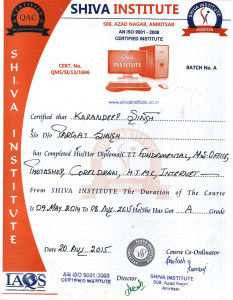 SHIVA INSTITUTE
508, AZAD NAGAR, AMRITSAR
AN ISO 9001 - 2008
CERTIFIED INSTITUTE
QAC
CERT. No.
QMS/SI/13/1696
BATCH No. A
www.shivainstitute.co.in
SHIVA INSTITUTE
Certified that KARANDEEP SINGH
S/o D/o JARGAJ SINGH
has Completed His/Her Diploma C.T.T. FUNDAMENTAL, M.S-OFFICE,
PHOTOSHOP, CORELDRAW, H.T.M.L, INTERNET
From SHIVA INSTITUTE The Duration of The Course
is 09 MAY 2014 TO 08 AUG. 2015 He/She Has Got A Grade
Date 20 AUG. 2015
Course Co-Ordinator
IAQS
AN ISO 9001-2008
CERTIFIED INSTITUTE
Director
SHIVA INSTITUTE
508, Azad Nagar
Amritsar